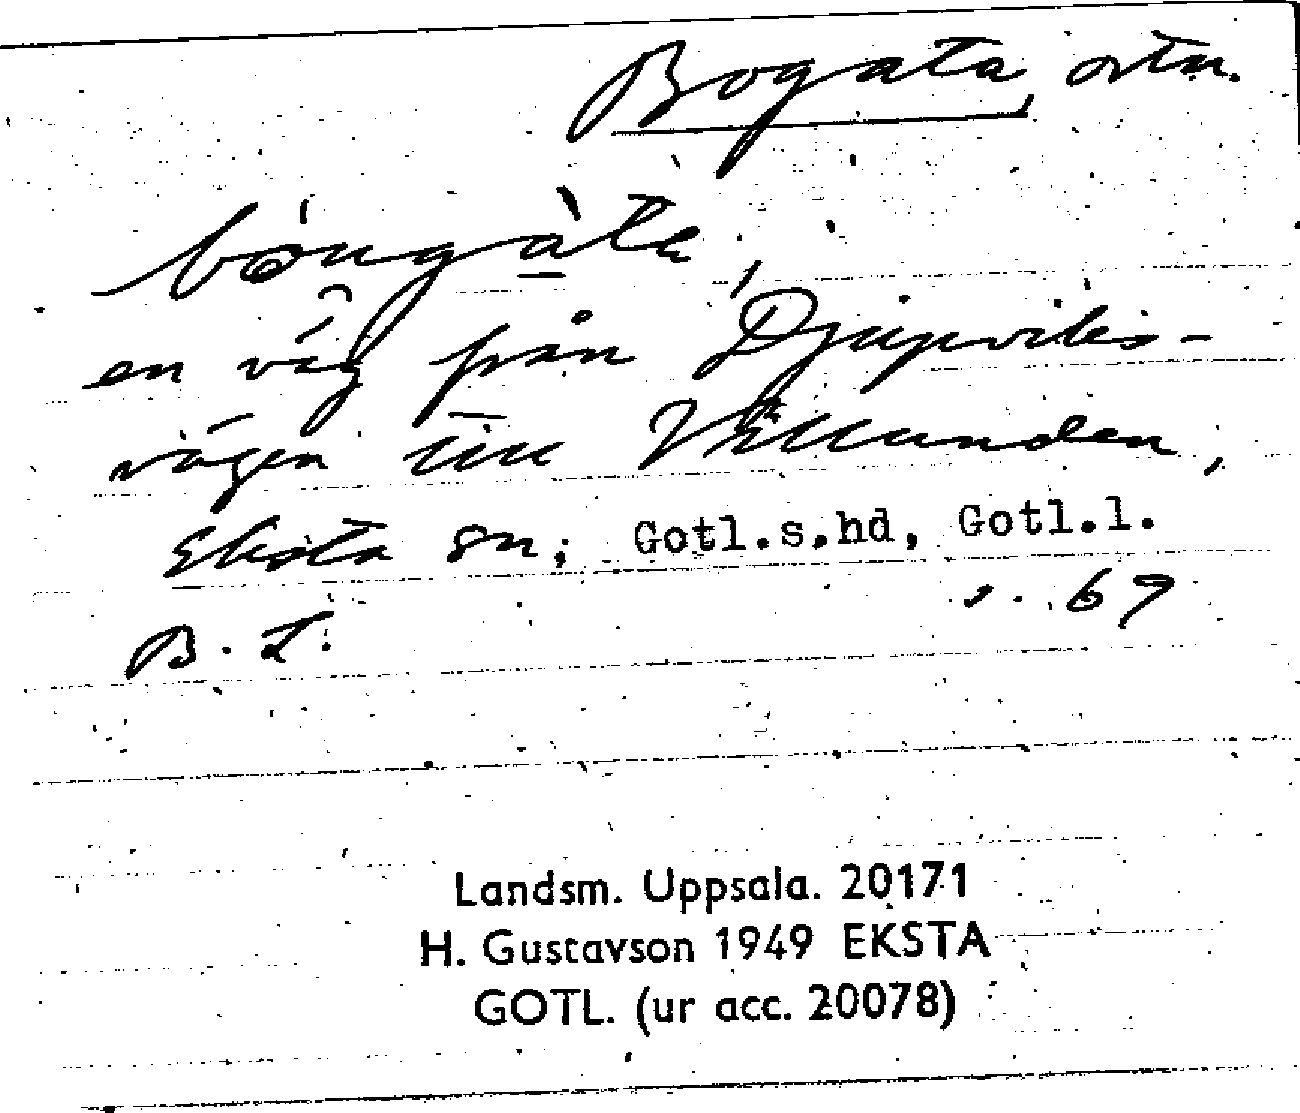 Bogata, ortn.
en väg från Djupvike-
vägen till
Eksta sn; Gotl.s.hd, Gotl.l.
B. L. s. 69
Landsm. Uppsala. 20171
H. Gustavson 1949 EKSTA
GOTL. (ur acc. 20078)